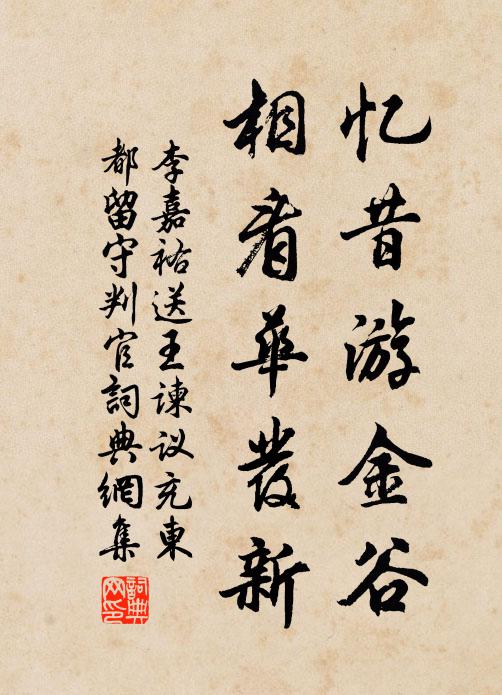 忆昔游金谷
相看华发新
李嘉祐送王谏议充东
都留守判官词典網集
詞典網印